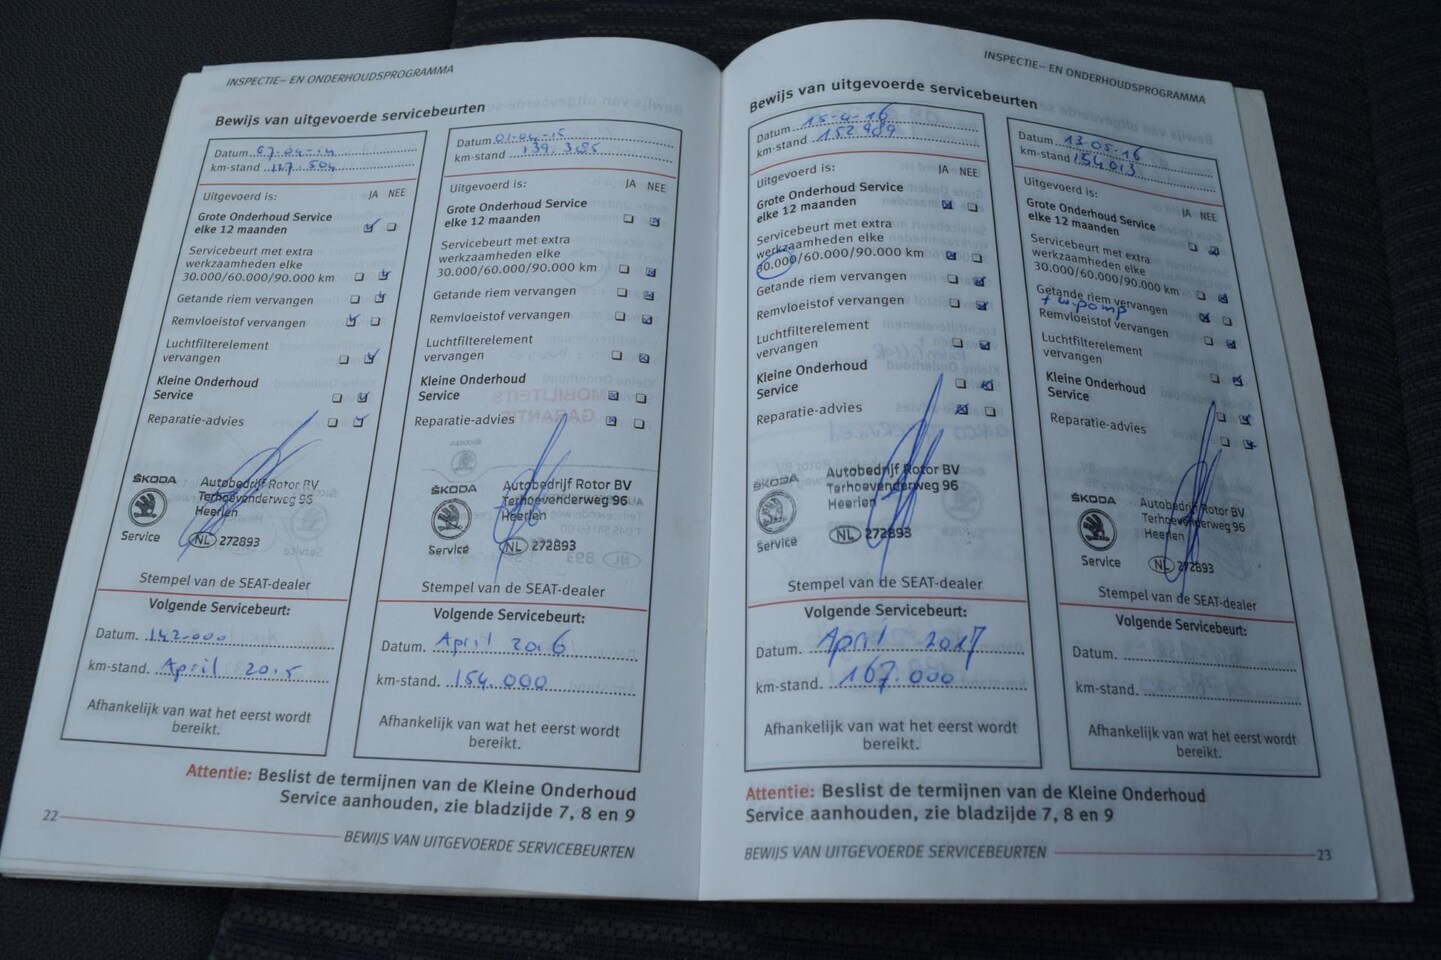 INSPECTIE- EN ONDERHOUDSPROGRAMMA
Bewijs van uitgevoerde servicebeurten
Datum 07-04-14
km-stand 127.504
Uitgevoerd is: JA NEE
Grote Onderhoud Service
elke 12 maanden
Servicebeurt met extra
werkzaamheden elke
30.000/60.000/90.000 km
Getande riem vervangen
Remvloeistof vervangen
Luchtfilterelement
vervangen
Kleine Onderhoud
Service
Reparatie-advies
ŠKODA
Service
Autobedrijf Rotor BV
Terhoevenderweg 96
Heerlen
NL 272893
Stempel van de SEAT-dealer
Volgende Servicebeurt:
Datum. 142.000
km-stand. April 2015
Afhankelijk van wat het eerst wordt
bereikt.
Datum 01-04-15
km-stand 139.385
Uitgevoerd is: JA NEE
Grote Onderhoud Service
elke 12 maanden
Servicebeurt met extra
werkzaamheden elke
30.000/60.000/90.000 km
Getande riem vervangen
Remvloeistof vervangen
Luchtfilterelement
vervangen
Kleine Onderhoud
Service
Reparatie-advies
ŠKODA
Service
Autobedrijf Rotor BV
Terhoevenderweg 96
Heerlen
NL 272893
Stempel van de SEAT-dealer
Volgende Servicebeurt:
Datum. April 2016
km-stand. 154.000
Afhankelijk van wat het eerst wordt
bereikt.
Attentie: Beslist de termijnen van de Kleine Onderhoud
Service aanhouden, zie bladzijde 7, 8 en 9
22
BEWIJS VAN UITGEVOERDE SERVICEBEURTEN
INSPECTIE- EN ONDERHOUDSPROGRAMMA
Bewijs van uitgevoerde servicebeurten
Datum 15-4-16
km-stand 152989
Uitgevoerd is: JA NEE
Grote Onderhoud Service
elke 12 maanden
Servicebeurt met extra
werkzaamheden elke
30.000/60.000/90.000 km
Getande riem vervangen
Remvloeistof vervangen
Luchtfilterelement
vervangen
Kleine Onderhoud
Service
Reparatie-advies
ŠKODA
Service
Autobedrijf Rotor BV
Terhoevenderweg 96
Heerlen
NL 272893
Stempel van de SEAT-dealer
Volgende Servicebeurt:
Datum. April 2017
km-stand. 167.000
Afhankelijk van wat het eerst wordt
bereikt.
Datum 13-05-16
km-stand 154013
Uitgevoerd is: JA NEE
Grote Onderhoud Service
elke 12 maanden
Servicebeurt met extra
werkzaamheden elke
30.000/60.000/90.000 km
Getande riem vervangen
+ w.pomp
Remvloeistof vervangen
Luchtfilterelement
vervangen
Kleine Onderhoud
Service
Reparatie-advies
ŠKODA
Service
Autobedrijf Rotor BV
Terhoevenderweg 96
Heerlen
NL 272893
Stempel van de SEAT-dealer
Volgende Servicebeurt:
Datum.
km-stand.
Afhankelijk van wat het eerst wordt
bereikt.
Attentie: Beslist de termijnen van de Kleine Onderhoud
Service aanhouden, zie bladzijde 7, 8 en 9
BEWIJS VAN UITGEVOERDE SERVICEBEURTEN
23